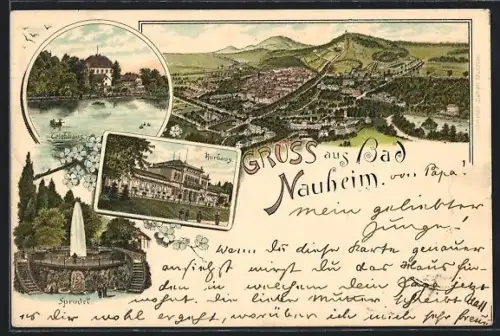 Teichhaus
Kurhaus
Sprudel
GRUSS aus Bad
Nauheim. von Papa!
Mein geliebter
Junge!
Wenn du diese Karte genauer
ansiehst wirst du das Haus fin-
den in welchem dein Papa jetzt
wohnt. die liebe Mutter schreibt daß
es dir wohl ergeht, worüber ich mich sehr freue